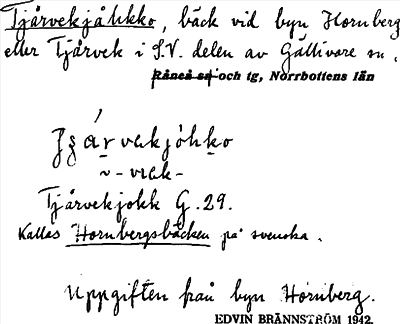 Tjårvekjåhkko, bäck vid byn Hornberg
eller Tjårvek i S.V. delen av Gällivare sn.
Råneå sn och tg, Norrbottens län
várvekjóhko
Tjårvekjokk G. 29.
Kallas Hornbergsbäcken på svenska.
Uppgiften från byn Hornberg.
EDVIN BRÄNNSTRÖM 1942.